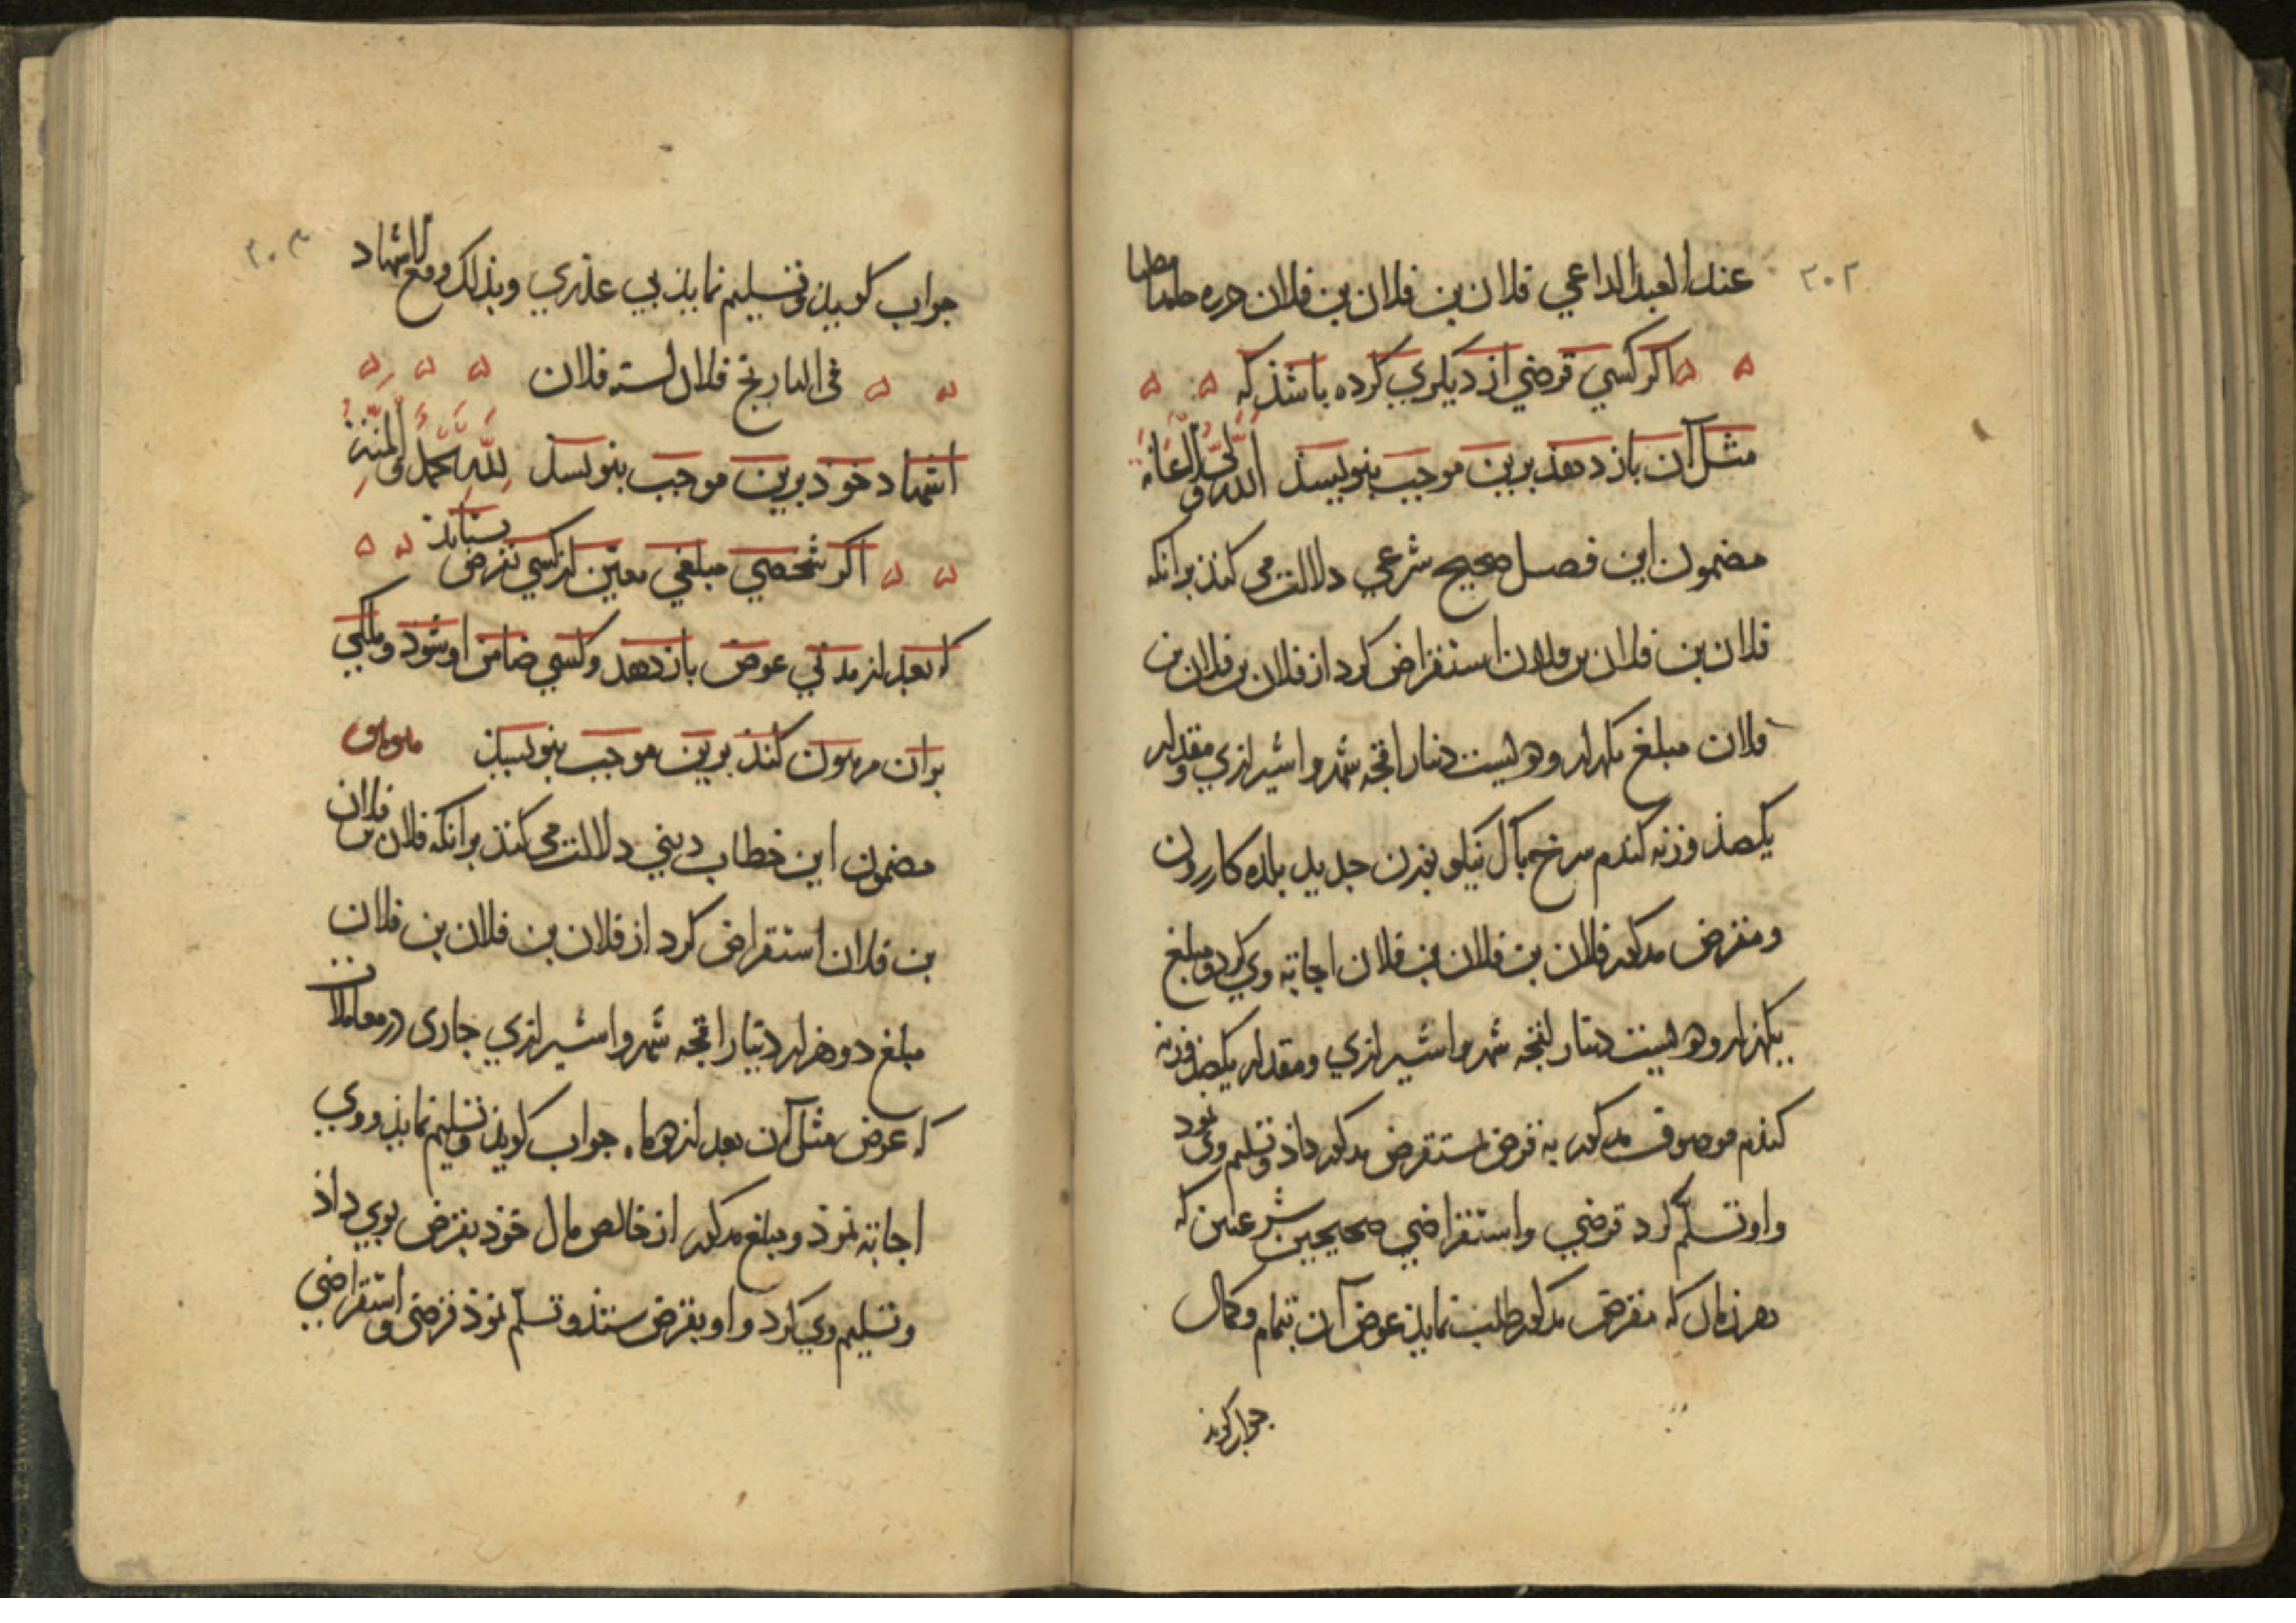 ٢٠٢
عند العبد الداعي فلان بن فلان بن فلان
اکر کسي قرضي از دیکري کرده باشذ که
مثل آن باز دهذ برین موجب بنویسذ
مضمون این فصل صحیح شرعي دلالت می کنذ برانکه
فلان بن فلان بن فلان استقراض کرد از فلان بن فلان بن
فلان مبلغ یکهزار و دویست دینار اقجه شهروا شیرازي ومقدار
یکصذ وزنه کندم سرخ پاک نیکو بوزن جدید بلده کازرون
ومقرض مذکور فلان بن فلان بن فلان اجابة وي کرد ومبلغ
یکهزار و دویست دینار اقجه شهروا شیرازي ومقدار یکصذ وزنه
کندم موصوف مذکور به قرض مستقرض مذکور داذ وتسلیم وی نمود
واو تسلّم کرد قرضي واستقراضي صحیحین شرعیین که
هر زمان که مقرض مذکور طلب نمایذ عوض آن بتمام وکمال
جواب کویذ
٢٠٣
جواب کویذ وتسلیم نمایذ بي عذري وبذلک وقع الاشهاد
فی التاریخ فلان لسنه فلان
اشهاد خوذ برین موجب بنویسذ لله الحمد والمنة
اکر شخصي مبلغي معیّن از کسي بقرض بستانذ
که بعد از مدتي عوض باز دهد وکسي ضامن او شود وملکي
بران مرهون کنذ برین موجب بنویسذ
مضمون این خطاب دیني دلالت می کنذ برانکه فلان بن فلان
بن فلان استقراض کرد از فلان بن فلان بن فلان
مبلغ دو هزار دینار اقجه شهروا شیرازي جاری در معاملات
که عوض مثل آن بعد از ده ماه جواب کویذ وتسلیم نمایذ ووي
اجابة نموذ ومبلغ مذکور از خالص مال خوذ بقرض بوي داذ
وتسلیم وي کرد واو بقرض ستذ وتسلّم نموذ قرضي واستقراضي